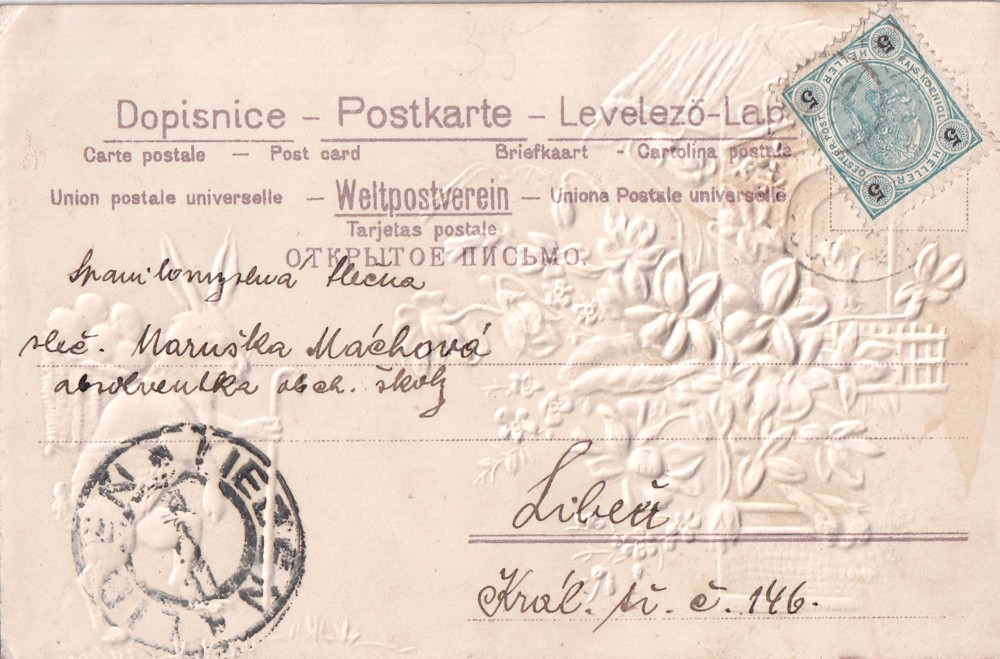 Dopisnice – Postkarte – Levelező-Lap
Carte postale — Post card Briefkaart – Cartolina postale
Union postale universelle – Weltpostverein – Uniona Postale universelle
Tarjetas postale
ОТКРЫТОЕ ПИСЬМО.
slečna
sleč. Maruška Máchová
absolventka obch. školy
Libeň
Král. tř. č. 146.
5 5 5 5
HELLER HELLER
KAIS. KOENIGL.
OESTERR. POST